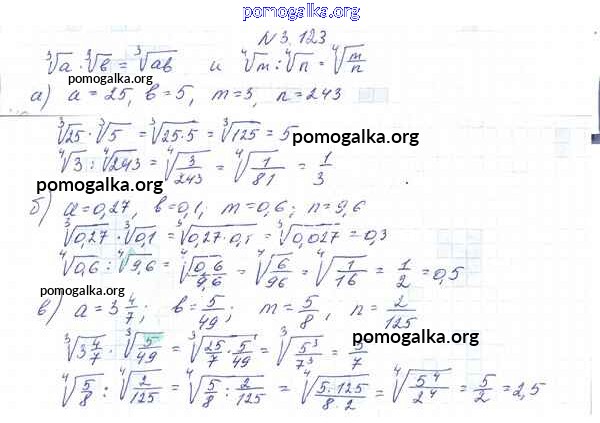 pomogalka.org
N 3.123
∛a · ∛b = ∛ab и ∜m : ∜n = ∜(m/n)
pomogalka.org
а) a = 25, b = 5, m = 3, n = 243
∛25 · ∛5 = ∛(25·5) = ∛125 = 5
pomogalka.org
∜3 : ∜243 = ∜(3/243) = ∜(1/81) = 1/3
pomogalka.org
б) a = 0,27, b = 0,1; m = 0,6; n = 9,6
∛0,27 · ∛0,1 = ∛(0,27·0,1) = ∛0,027 = 0,3
∜0,6 : ∜9,6 = ∜(0,6/9,6) = ∜(6/96) = ∜(1/16) = 1/2 = 0,5
pomogalka.org
pomogalka.org
в) a = 3 4/7; b = 5/49; m = 5/8; n = 2/125
pomogalka.org
∛(3 4/7) · ∛(5/49) = ∛(25/7 · 5/49) = ∛(5³/7³) = 5/7
∜(5/8) : ∜(2/125) = ∜(5/8 : 2/125) = ∜(5·125/8·2) = ∜(5⁴/2⁴) = 5/2 = 2,5